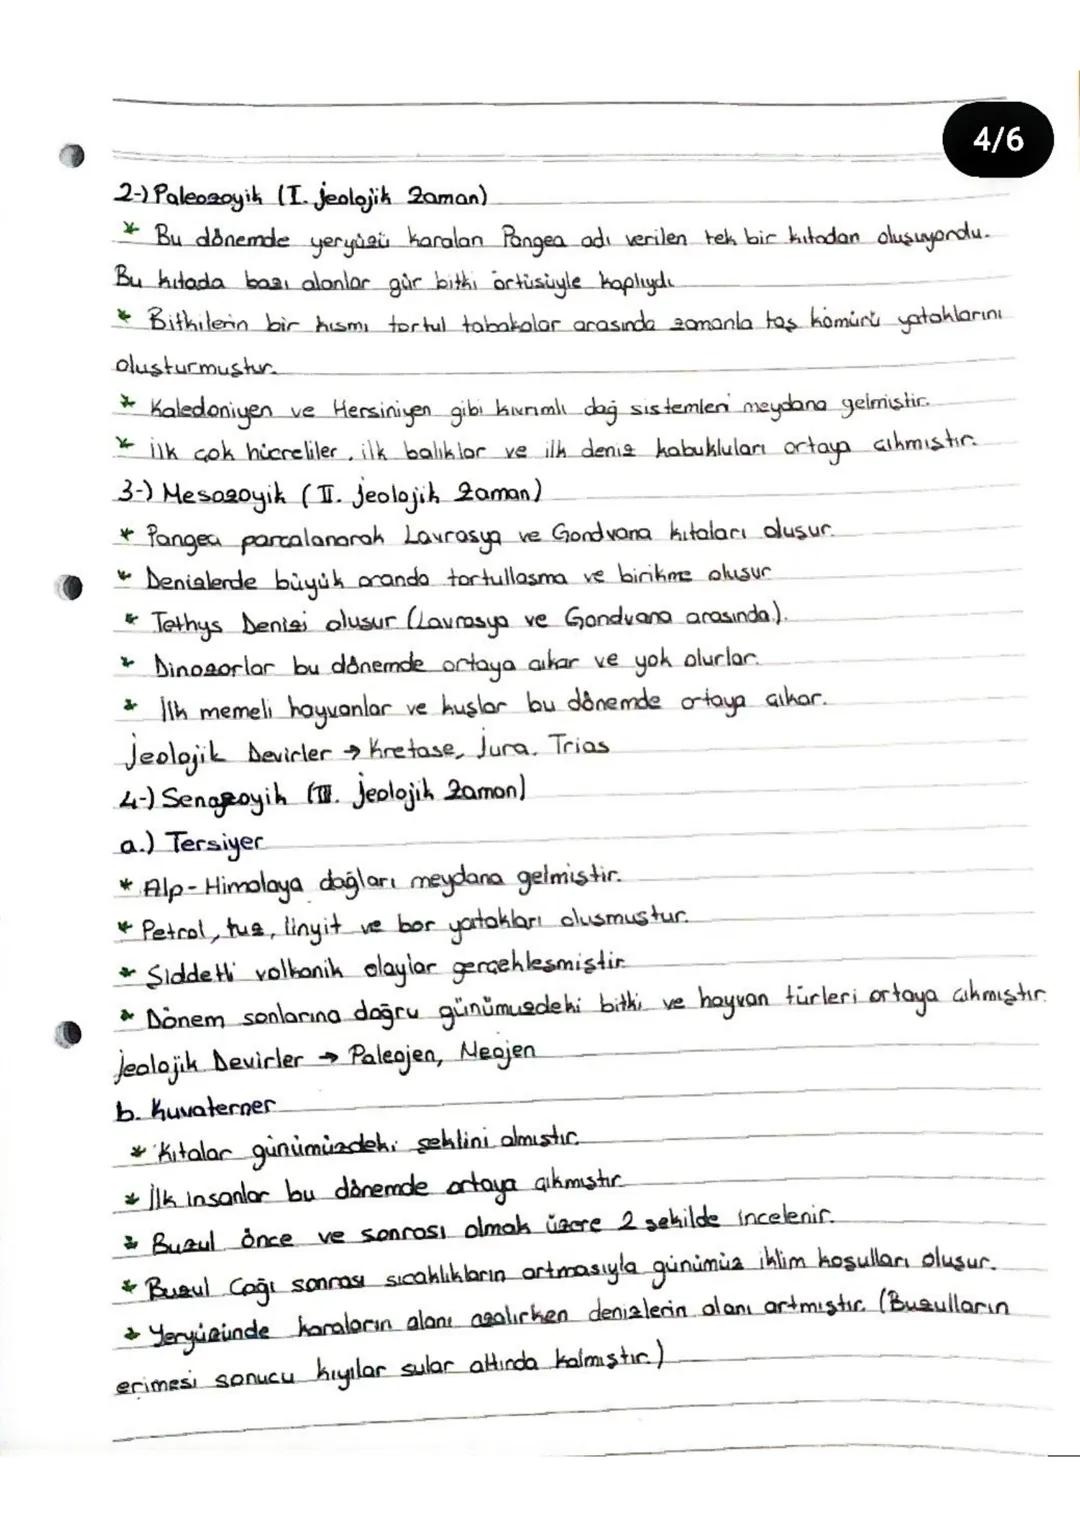 4/6
2-) Paleozoyik (I. jeolojik Zaman)
* Bu dönemde yeryüzü karaları Pangea adı verilen tek bir kıtadan oluşuyordu.
Bu kıtada bazı alanlar gür bitki örtüsüyle kaplıydı
* Bitkilerin bir kısmı tortul tabakalar arasında zamanla taş kömürü yataklarını
oluşturmuştur.
* Kaledoniyen ve Hersiniyen gibi kıvrımlı dağ sistemleri meydana gelmiştir.
* İlk çok hücreliler, ilk balıklar ve ilk deniz kabukluları ortaya çıkmıştır.
3-) Mesozoyik (II. jeolojik Zaman)
* Pangea parçalanarak Lavrasya ve Gondvana kıtaları oluşur.
* Denizlerde büyük oranda tortullaşma ve birikme oluşur
* Tethys Denizi oluşur (Lavrasya ve Gondvana arasında.).
* Dinozorlar bu dönemde ortaya çıkar ve yok olurlar.
* İlk memeli hayvanlar ve kuşlar bu dönemde ortaya çıkar.
Jeolojik Devirler → Kretase, Jura, Trias
4-) Senozoyik (III. jeolojik Zaman)
a.) Tersiyer
* Alp-Himalaya dağları meydana gelmiştir.
* Petrol, tuz, linyit ve bor yatakları oluşmuştur.
* Şiddetli volkanik olaylar gerçekleşmiştir
* Dönem sonlarına doğru günümüzdeki bitki ve hayvan türleri ortaya çıkmıştır.
Jeolojik Devirler → Paleojen, Neojen
b. Kuvaterner
* Kıtalar günümüzdeki şeklini almıştır.
* İlk insanlar bu dönemde ortaya çıkmıştır
* Buzul önce ve sonrası olmak üzere 2 şekilde incelenir.
* Buzul Çağı sonrası sıcaklıkların artmasıyla günümüz iklim koşulları oluşur.
* Yeryüzünde karaların alanı azalırken denizlerin alanı artmıştır. (Buzulların
erimesi sonucu kıyılar sular altında kalmıştır.)